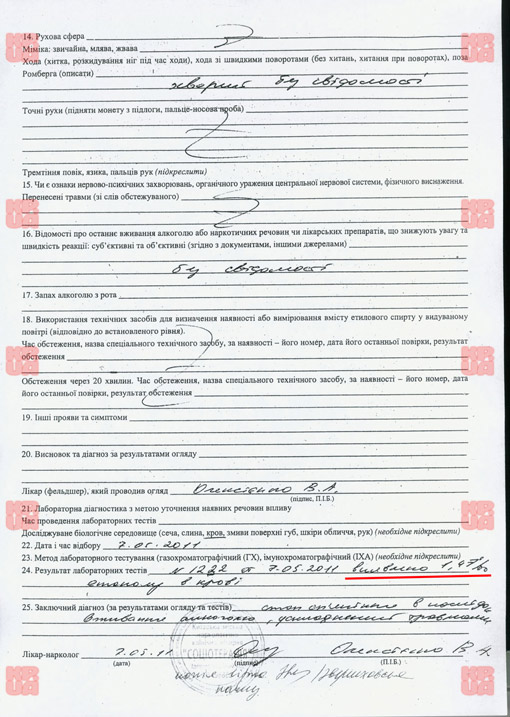 14. Рухова сфера
Міміка: звичайна, млява, жвава
Хода (хитка, розкидування ніг під час ходи), хода зі швидкими поворотами (без хитань, хитання при поворотах), поза
Ромберга (описати)
хворий без свідомості
Точні рухи (підняти монету з підлоги, пальце-носова проба)
Тремтіння повік, язика, пальців рук (підкреслити)
15. Чи є ознаки нервово-психічних захворювань, органічного ураження центральної нервової системи, фізичного виснаження.
Перенесені травми (зі слів обстежуваного)
16. Відомості про останнє вживання алкоголю або наркотичних речовин чи лікарських препаратів, що знижують увагу та
швидкість реакції: суб'єктивні та об'єктивні (згідно з документами, іншими джерелами)
без свідомості
17. Запах алкоголю з рота
18. Використання технічних засобів для визначення наявності або вимірювання вмісту етилового спирту у видуваному
повітрі (відповідно до встановленого рівня).
Час обстеження, назва спеціального технічного засобу, за наявності – його номер, дата його останньої повірки, результат
обстеження
Обстеження через 20 хвилин. Час обстеження, назва спеціального технічного засобу, за наявності – його номер, дата
його останньої повірки, результат обстеження
19. Інші прояви та симптоми
20. Висновок та діагноз за результатами огляду
Лікар (фельдшер), який проводив огляд В.А.
(підпис, П.І.Б.)
21. Лабораторна діагностика з метою уточнення наявних речовин впливу
Час проведення лабораторних тестів
Досліджуване біологічне середовище (сеча, слина, кров, змиви поверхні губ, шкіри обличчя, рук) (необхідне підкреслити)
22. Дата і час відбору 7.05.2011
23. Метод лабораторного тестування (газохроматографічний (ГХ), імунохроматографічний (ІХА) (необхідне підкреслити)
24. Результат лабораторних тестів N 1232 от 7.05.2011 виявлено 1,47‰
етанолу в крові
25. Заключний діагноз (за результатами огляду та тестів) стан сп'яніння в наслідок
вживання алкоголю, ускладнений травмою
Лікар-нарколог 7.05.11 В А
(дата) (підпис) (П.І.Б.)
копие вірно